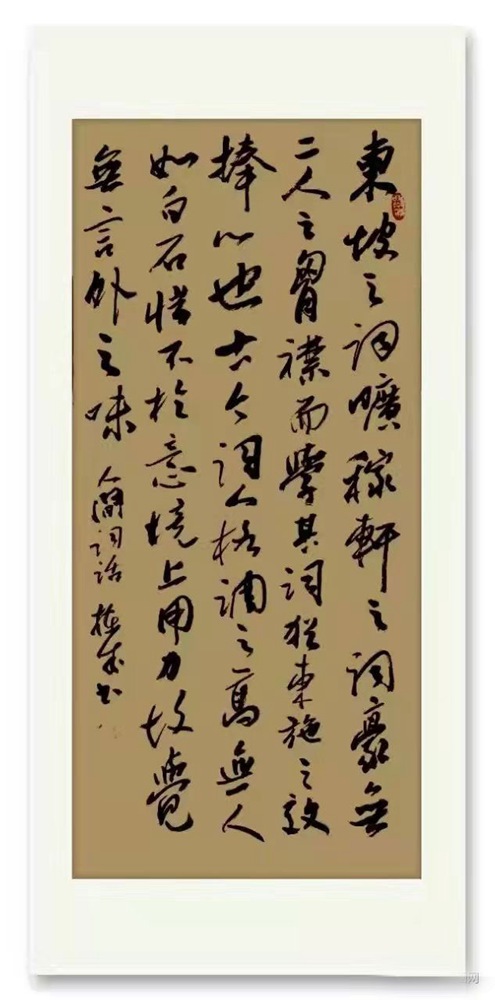 東坡之詞曠稼軒之詞豪無
二人之胷襟而學其詞猶東施之效
捧心也古今詞人格調之高無人
如白石惜不於意境上用力故覺
無言外之味 人间词话 书
网